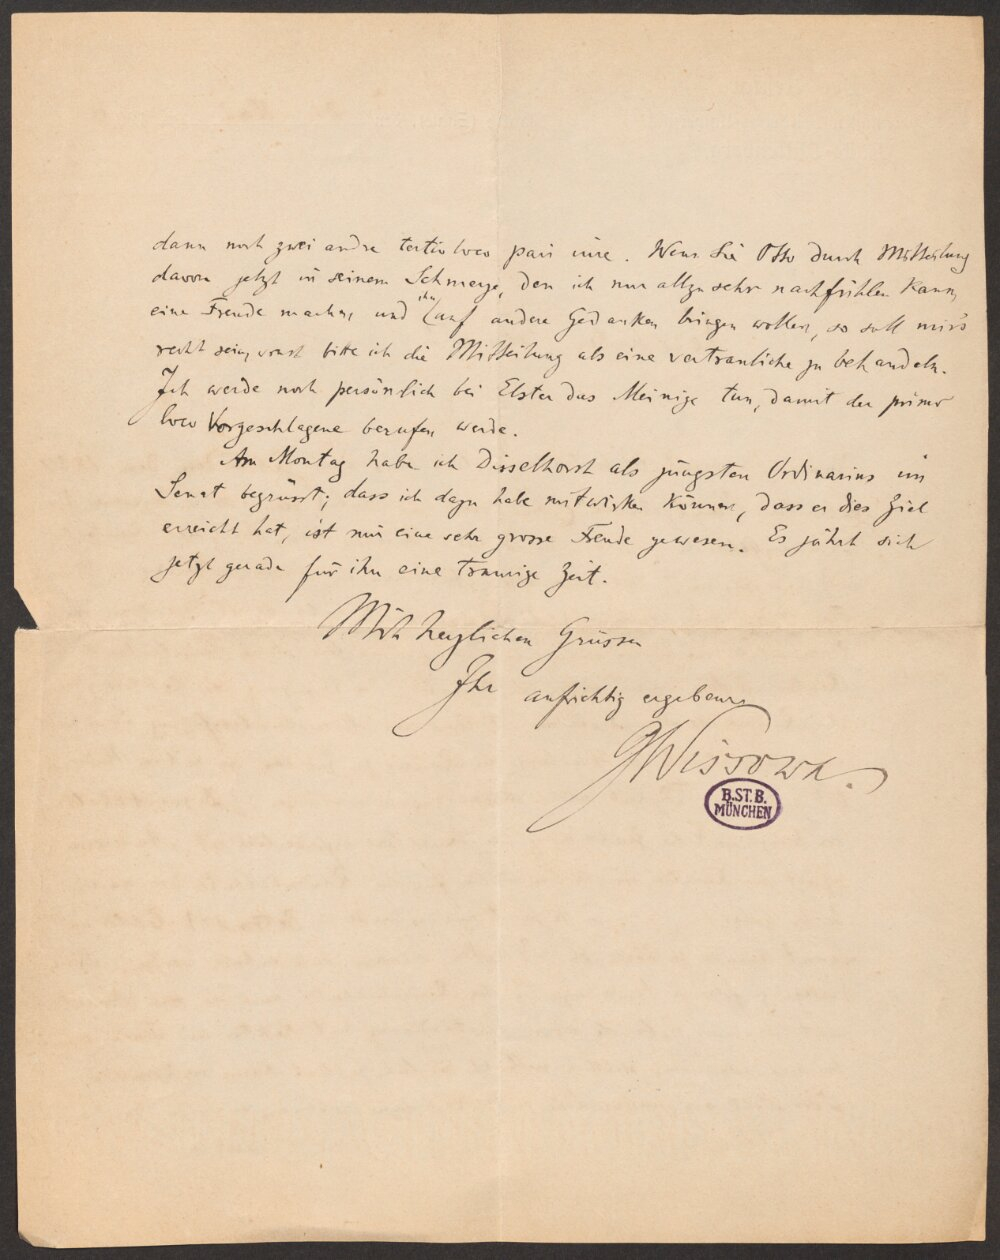 dann noch zwei andre tertio loco pari iure. Wenn Sie Otto durch Mitteilung
davon jetzt in seinem Schmerze, den ich nur allzu sehr nachfühlen kann,
eine Freude machen und ihn auf andere Gedanken bringen wollen, so soll mir's
recht sein, sonst bitte ich die Mitteilung als eine vertrauliche zu behandeln.
Ich werde noch persönlich bei Elster das Meinige tun, damit der primo
loco Vorgeschlagene berufen werde.
Am Montag habe ich Disselhorst als jüngsten Ordinarius im
Senat begrüsst; dass ich dazu habe mitwirken können, dass er dies Ziel
erreicht hat, ist mir eine sehr grosse Freude gewesen. Es jährt sich
jetzt gerade für ihn eine traurige Zeit.
Mit herzlichen Grüssen
Ihr aufrichtig ergebener
GWissowa.
B.ST.B.
MÜNCHEN